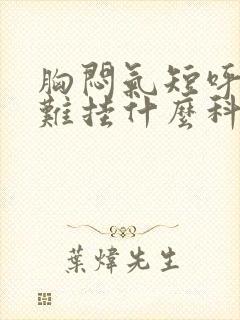 胸悶氣短呼
難挂什麼科
葉煒先生